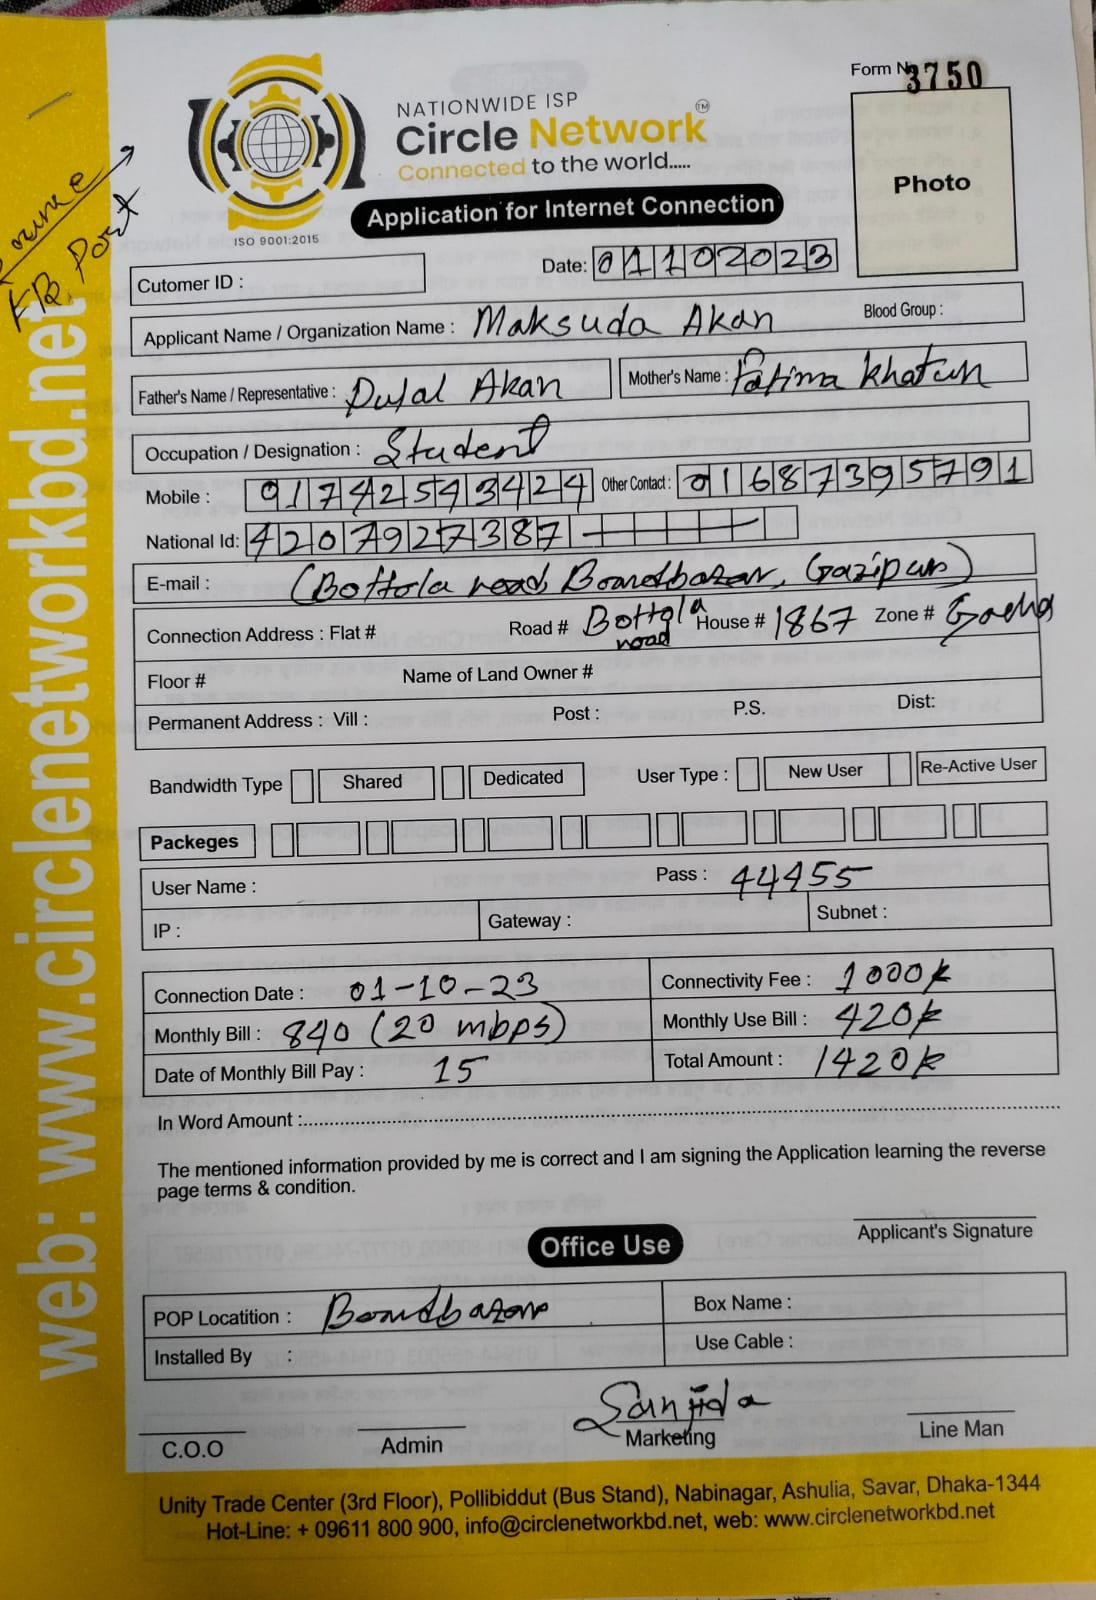 Form No
3750
NATIONWIDE ISP
Circle Network TM
Connected to the world.....
ISO 9001:2015
Application for Internet Connection
Photo
FB Post
Cutomer ID :
Date: 01102023
Applicant Name / Organization Name : Maksuda Akan Blood Group :
Father's Name / Representative : Dulal Akan Mother's Name : Fatima Khatun
Occupation / Designation : Student
Mobile : 01742543424 Other Contact : 01687395791
National Id: 4207927387
E-mail : (Bottola road Boardbazar, Gazipur)
Connection Address : Flat # Road # Bottola road House # 1867 Zone # Gacha
Floor # Name of Land Owner #
Permanent Address : Vill : Post : P.S. Dist:
Bandwidth Type Shared Dedicated User Type : New User Re-Active User
Packeges
User Name : Pass : 44455
IP : Gateway : Subnet :
Connection Date : 01-10-23 Connectivity Fee : 1000/-
Monthly Bill : 840 (20 mbps) Monthly Use Bill : 420/-
Date of Monthly Bill Pay : 15 Total Amount : 1420/-
In Word Amount :
The mentioned information provided by me is correct and I am signing the Application learning the reverse
page terms & condition.
Applicant's Signature
Office Use
POP Locatition : Boardbazar Box Name :
Installed By : Use Cable :
Sanjida
C.O.O Admin Marketing Line Man
Unity Trade Center (3rd Floor), Pollibiddut (Bus Stand), Nabinagar, Ashulia, Savar, Dhaka-1344
Hot-Line: + 09611 800 900, info@circlenetworkbd.net, web: www.circlenetworkbd.net
web: www.circlenetworkbd.net